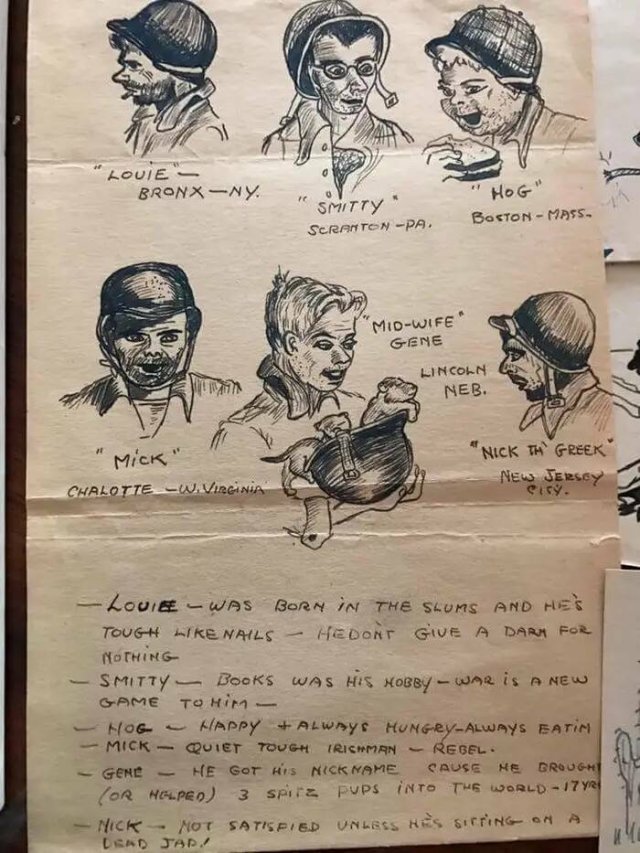 "LOUIE" —
BRONX — NY.
"SMITTY"
SCRANTON - PA.
"HOG"
BOSTON - MASS.
"MID-WIFE"
GENE
LINCOLN
NEB.
"MICK"
CHALOTTE — W. VIRGINIA
"NICK TH' GREEK"
NEW JERSEY
CITY.
— LOUIE — WAS BORN IN THE SLUMS AND HE'S
TOUGH LIKE NAILS — HE DON'T GIVE A DARN FOR
NOTHING
— SMITTY — BOOKS WAS HIS HOBBY — WAR IS A NEW
GAME TO HIM —
— HOG — HAPPY + ALWAYS HUNGRY — ALWAYS EATIN
— MICK — QUIET TOUGH IRISHMAN — REBEL.
— GENE — HE GOT HIS NICKNAME CAUSE HE BROUGHT
(OR HELPED) 3 SPITZ PUPS INTO THE WORLD - 17 YR
— NICK — NOT SATISFIED UNLESS HE'S SITTING ON A
DEAD JAP!